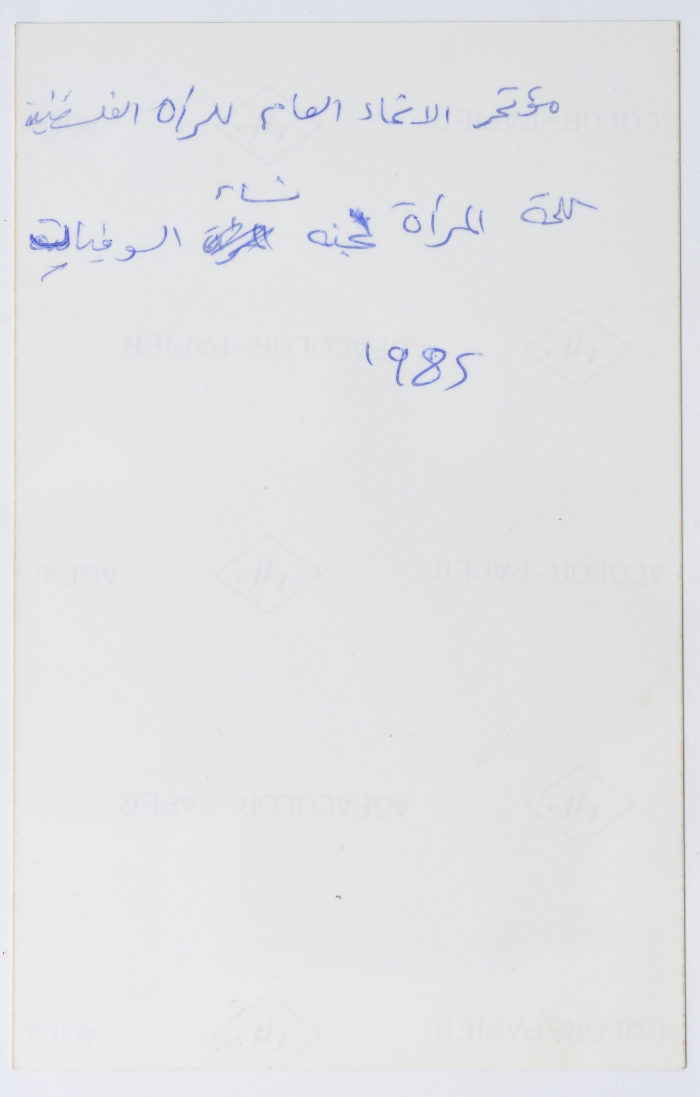 مؤتمر الاتحاد العام للمرأة الفلسطينية
كلمة المرأة لجنه نساء السوفيات
1985
AGFACOLOR-PAPIER
AGFACOLOR-PAPIER
AGFACOLOR-PAPIER
AGFACOLOR-PAPIER
AGFACOLOR-PAPIER